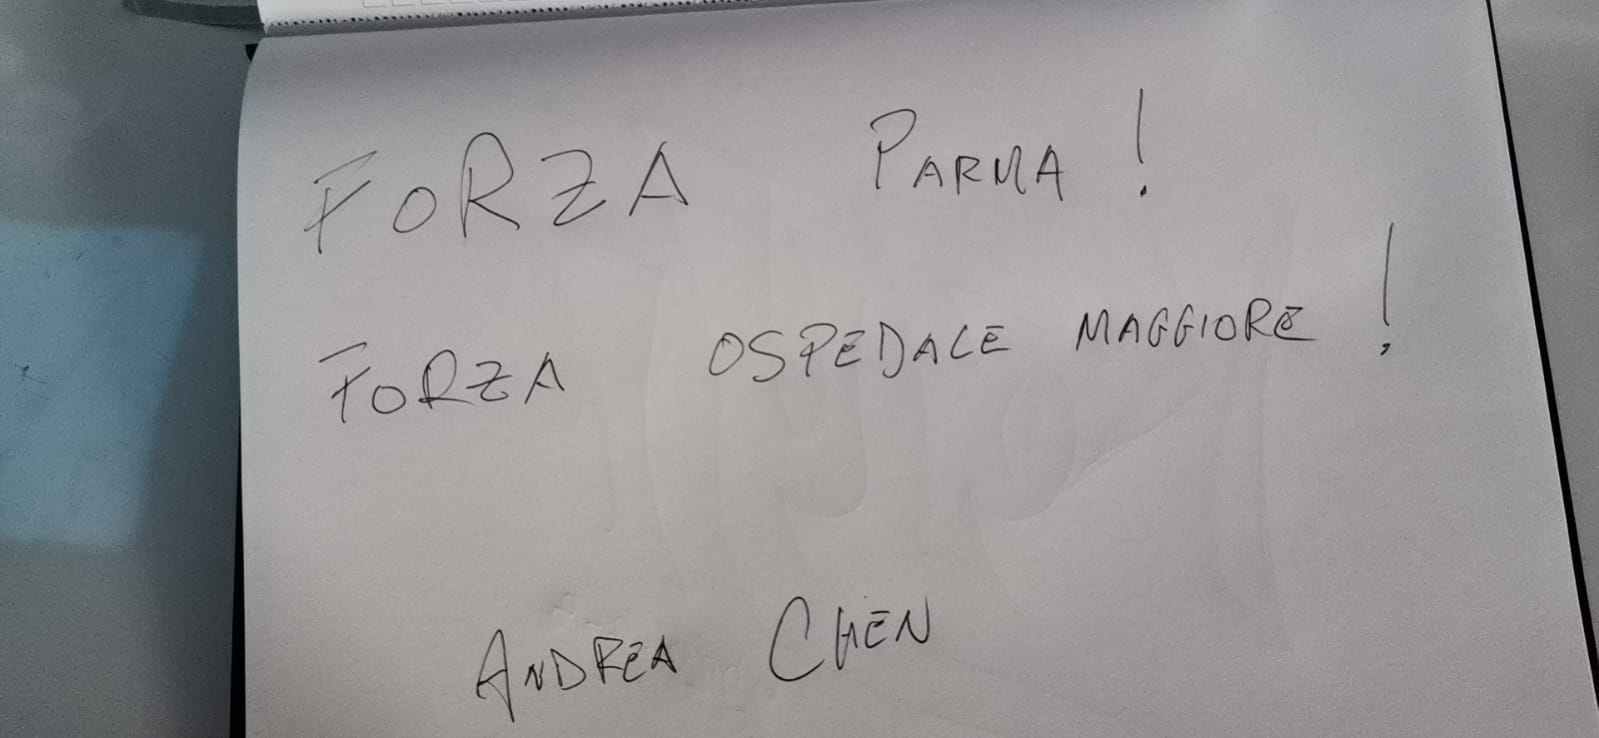 FORZA PARMA!
FORZA OSPEDALE MAGGIORE!
ANDREA CHEN